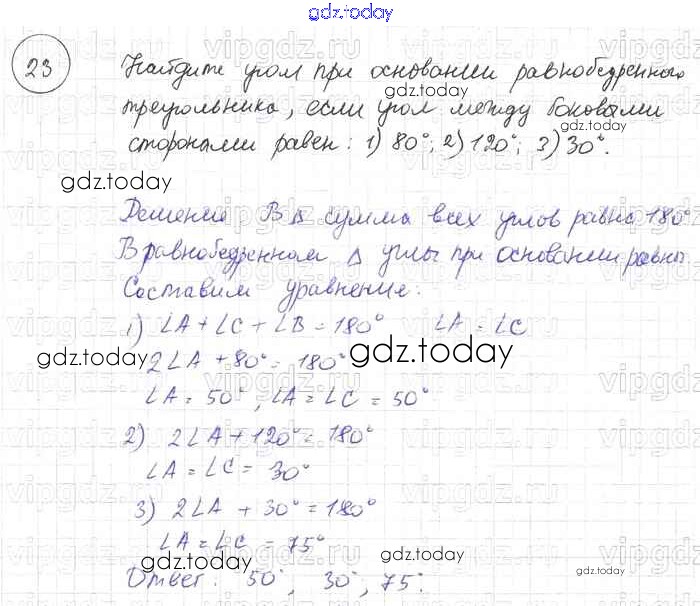 gdz.today
23
Найдите угол при основании равнобедренного
gdz.today
треугольника, если угол между боковыми
gdz.today
сторонами равен: 1) 80°; 2) 120°; 3) 30°.
gdz.today
Решение В Δ сумма всех углов равна 180°
В равнобедренном Δ углы при основании равны.
Составим уравнение:
1) ∠A + ∠C + ∠B = 180° ∠A = ∠C
gdz.today
2∠A + 80° = 180°
gdz.today
∠A = 50°, ∠A = ∠C = 50°
2) 2∠A + 120° = 180°
∠A = ∠C = 30°
3) 2∠A + 30° = 180°
∠A = ∠C = 75°
gdz.today
gdz.today
Ответ: 50°, 30°, 75°.
gdz.today